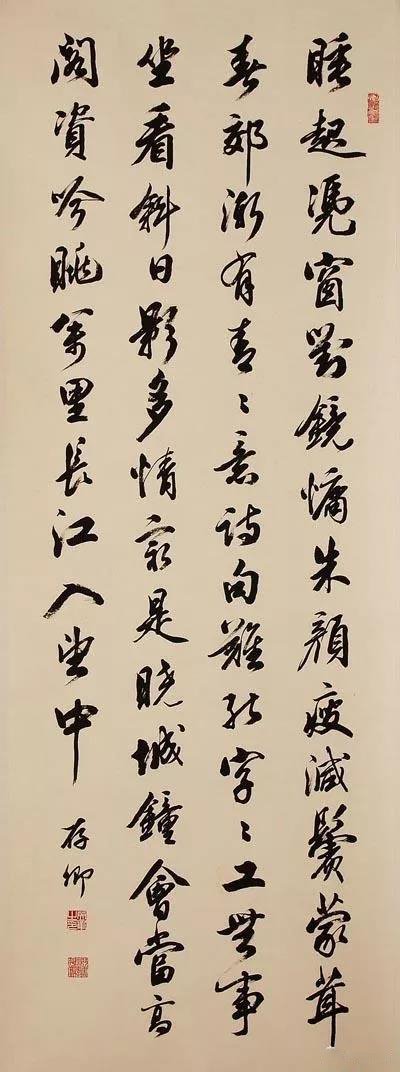 睡起凴窗對鏡慵朱顏瘦減鬢蒙茸
春郊漸有青〻意詩句難於字〻工無事
坐看斜日影多情最是曉城鐘會當高
閣資吟眺萬里長江入望中
存卿